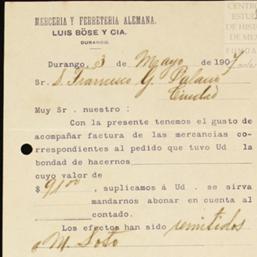 MERCERIA Y FERRETERIA ALEMANA.
DE
LUIS BÖSE Y CIA.
DURANGO.
Durango, 3 de Mayo de 1907
Sr. D. Francisco G. Palacio
Ciudad
Muy Sr. nuestro :
Con la presente tenemos el gusto de
acompañar factura de las mercancias co-
rrespondientes al pedido que tuvo Ud la
bondad de hacernos
cuyo valor de
$ 91.00 , suplicamos á Ud . se sirva
mandarnos abonar en cuenta al
contado.
Los efectos han sido remitidos
a M. Soto
CENTRO
ESTU
DE HIS
DE M
FUNDA